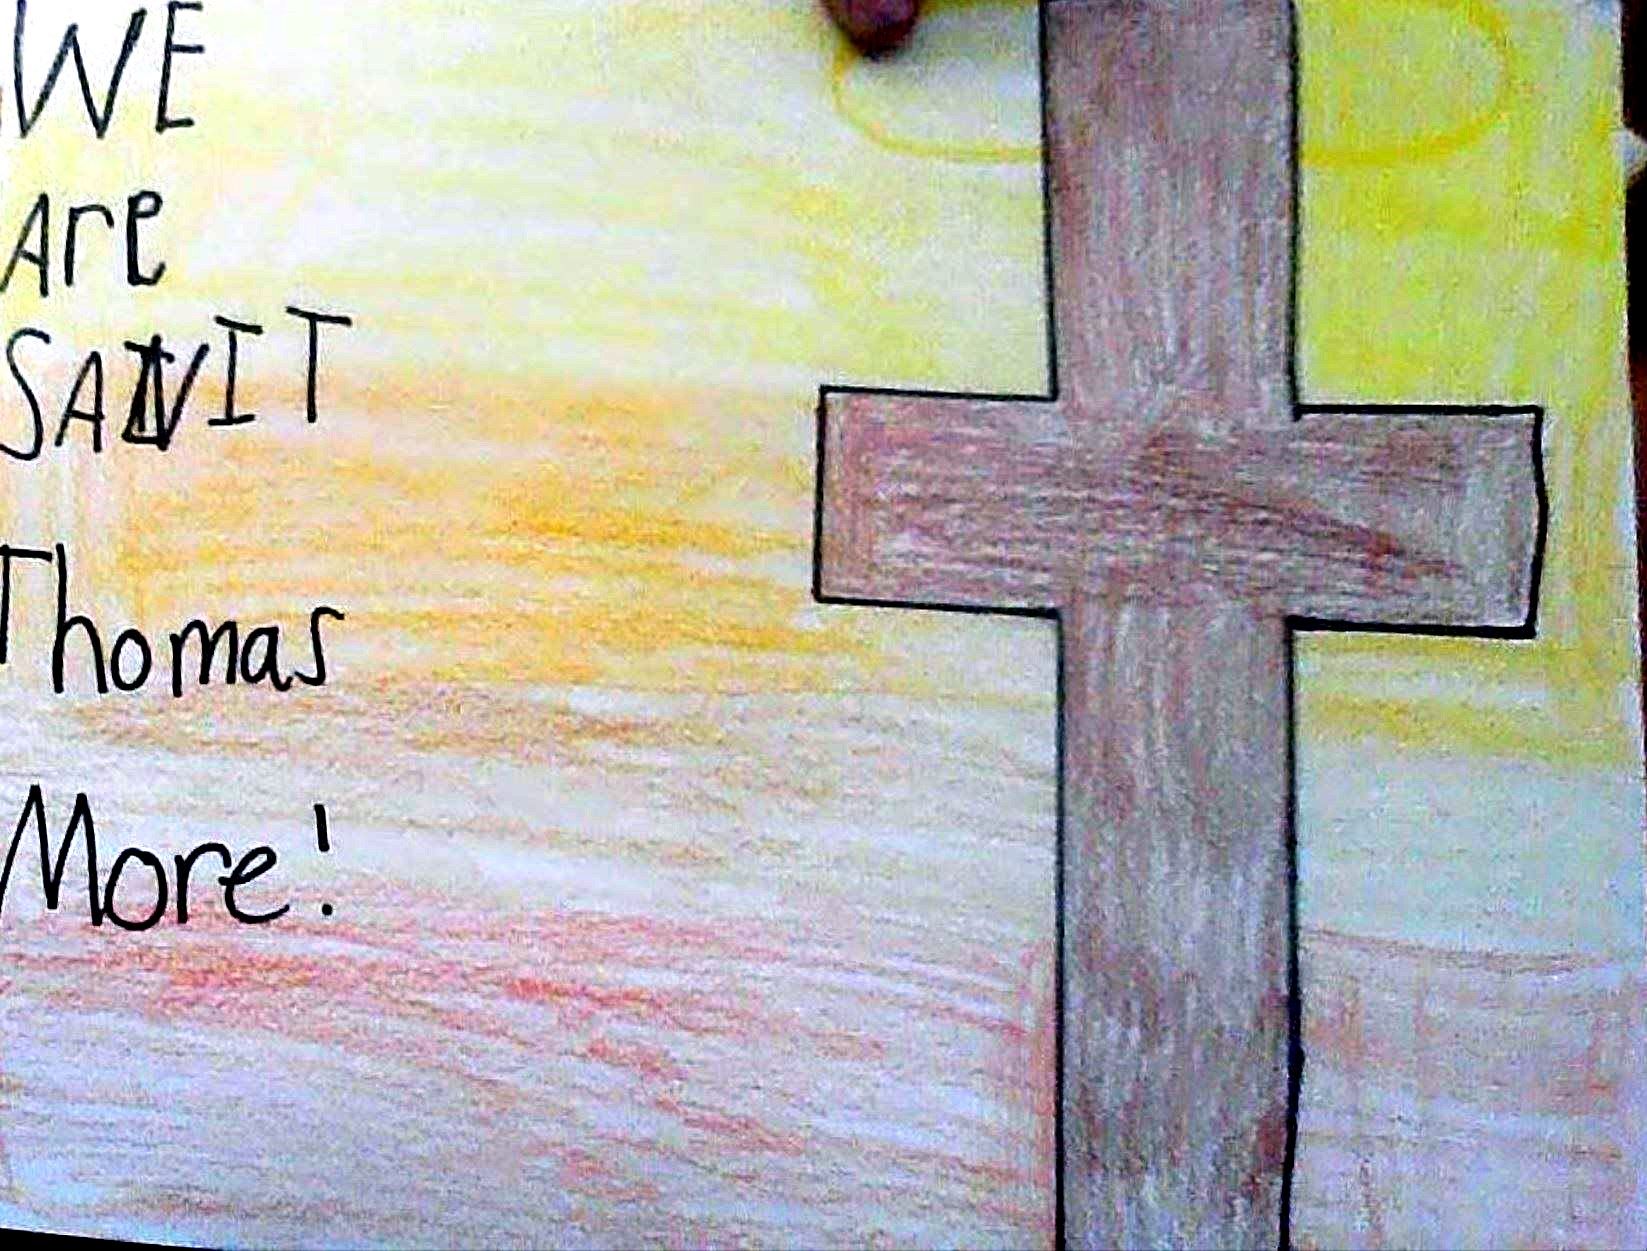 WE
Are
SANIT
Thomas
More!